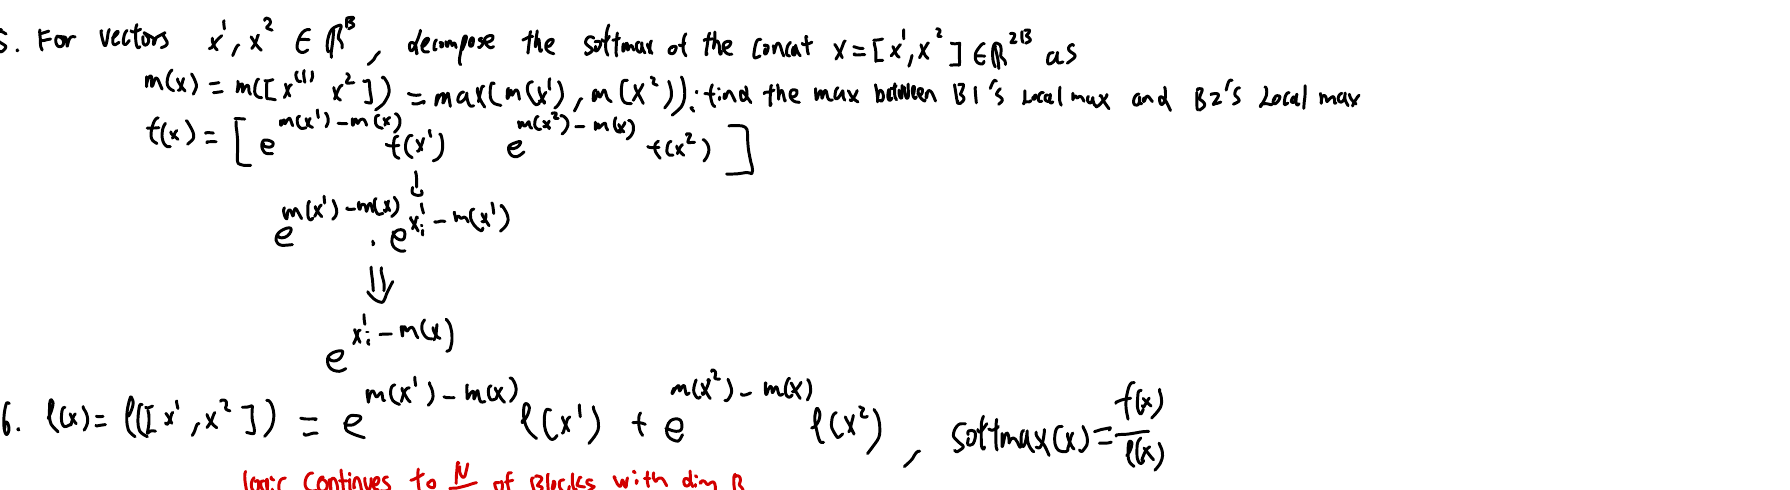 5. For vectors x¹, x² ∈ ℝᴮ, decompose the softmax of the concat x = [x¹, x²] ∈ ℝ²ᴮ as
m(x) = m([x⁽¹⁾ x²]) = max(m(x¹), m(x²)): find the max between B1's local max and B2's Local max
f(x) = [e^{m(x¹)-m(x)} f(x¹)  e^{m(x²)-m(x)} f(x²)]
↓
e^{m(x¹)-m(x)} · e^{xᵢ¹-m(x¹)}
⇓
e^{xᵢ¹-m(x)}
6. ℓ(x) = ℓ([x¹, x²]) = e^{m(x¹)-m(x)} ℓ(x¹) + e^{m(x²)-m(x)} ℓ(x²), softmax(x) = f(x)/ℓ(x)
logic continues to N of Blocks with dim B